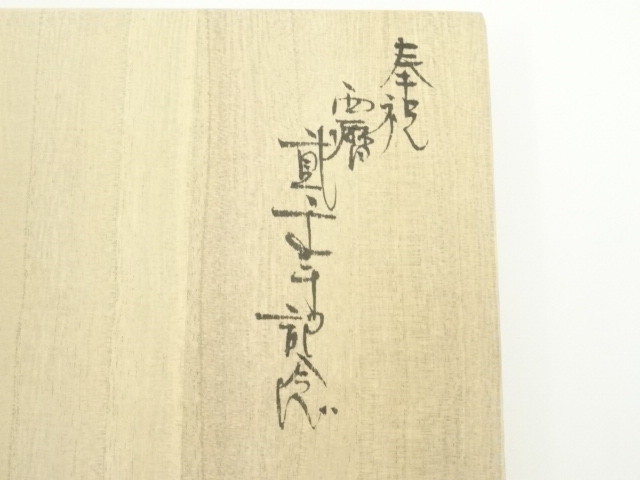 奉祝
西暦
貳千年記念